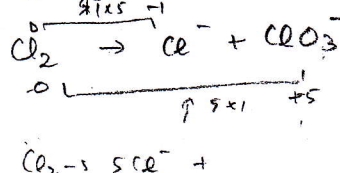 ↓1×5 -1
0
Cl₂ → Cl⁻ + ClO₃⁻
-0 ↑ 5×1 +5
Cl₂ → 5Cl⁻ +